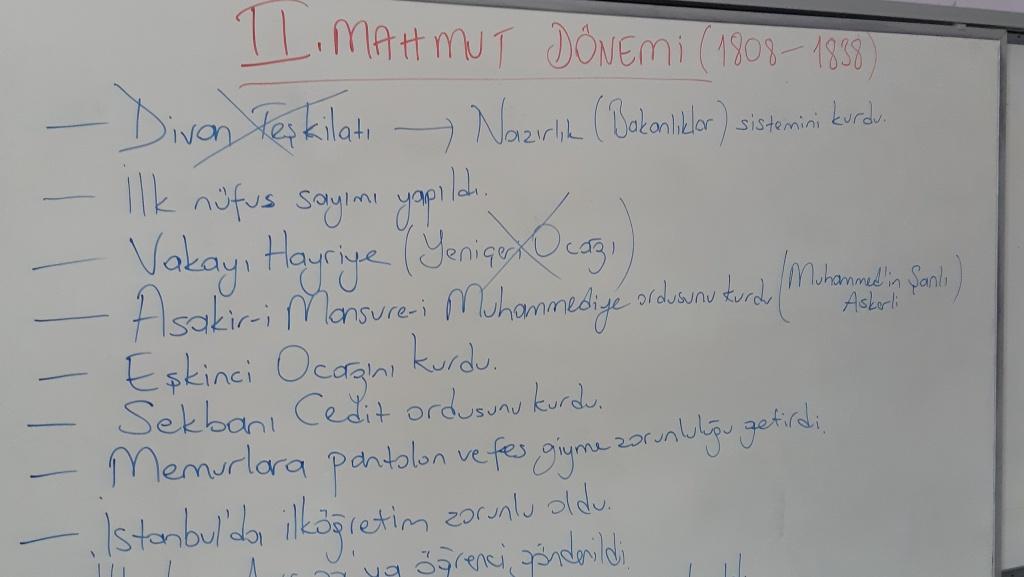 II. MAHMUT DÖNEMİ (1808-1838)
— Divan Teşkilatı → Nazırlık (Bakanlıklar) sistemini kurdu.
— İlk nüfus sayımı yapıldı.
— Vakayı Hayriye (Yeniçeri Ocağı)
— Asakir-i Mansure-i Muhammediye ordusunu kurdu (Muhammed'in Şanlı Askerli)
— Eşkinci Ocağını kurdu.
— Sekbanı Cedit ordusunu kurdu.
— Memurlara pantolon ve fes giyme zorunluluğu getirdi.
— İstanbul'da ilköğretim zorunlu oldu.
öğrenci gönderildi.